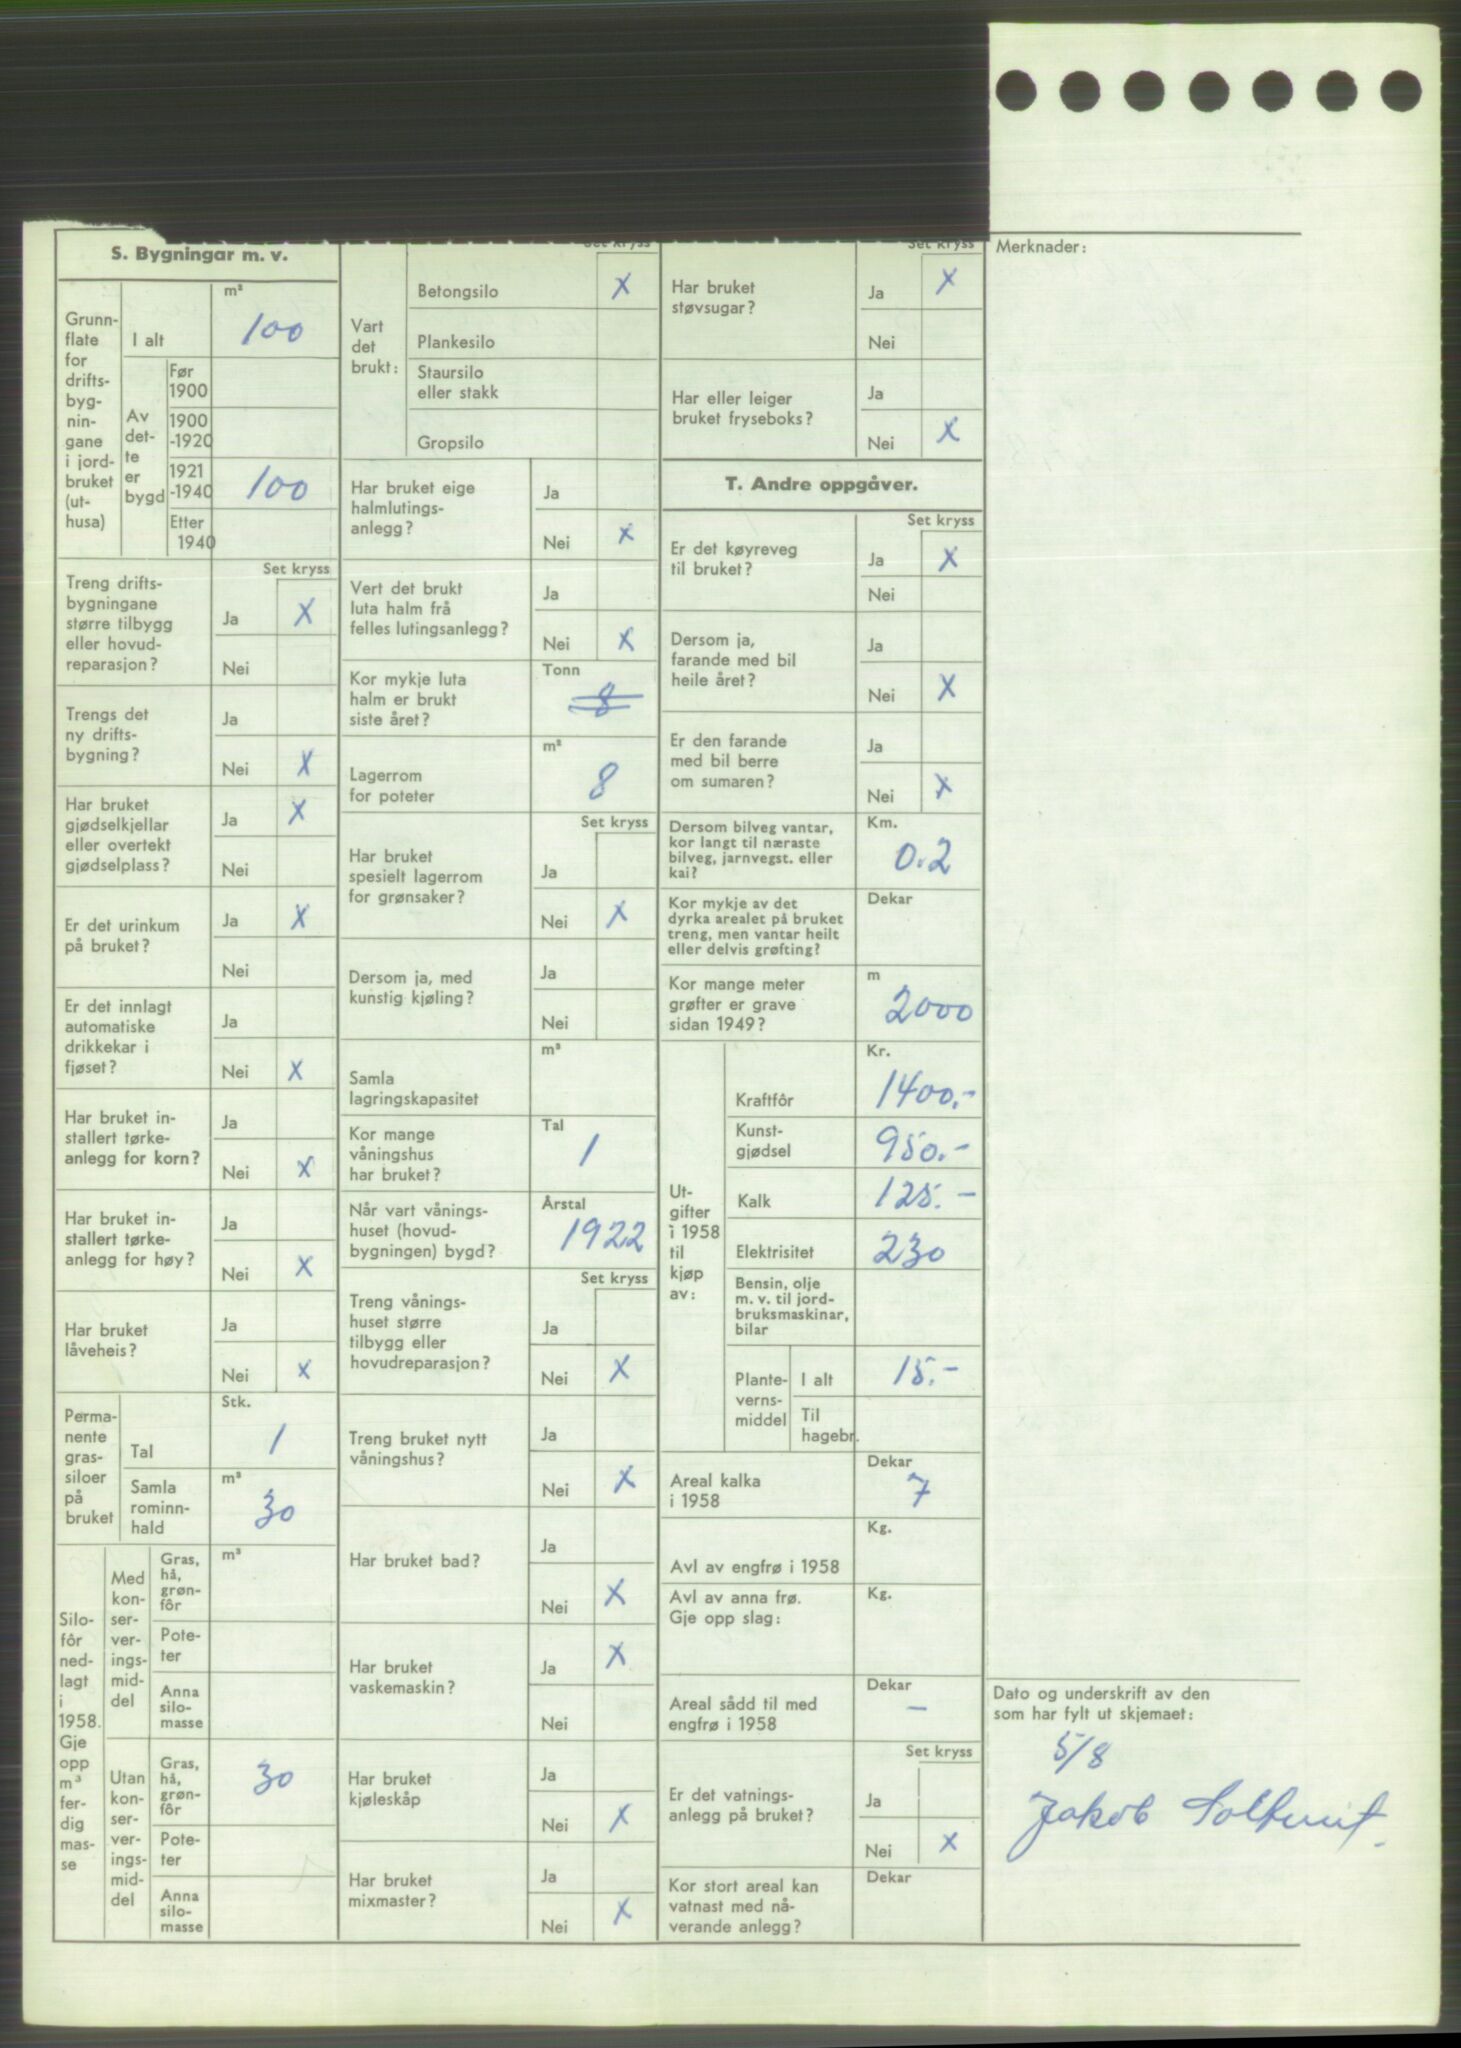 S. Bygningar m. v.
Grunn-
flate
for
drifts-
byg-
nin-
gane
i jord-
bruket
(ut-
husa)
I alt
m²
100
Av
det-
te
er
bygd
Før
1900
1900
-1920
1921
-1940
100
Etter
1940
Set kryss
Treng drifts-
bygningane
større tilbygg
eller hovud-
reparasjon?
Ja X
Nei
Trengs det
ny drifts-
bygning?
Ja
Nei X
Har bruket
gjødselkjellar
eller overtekt
gjødselplass?
Ja X
Nei
Er det urinkum
på bruket?
Ja X
Nei
Er det innlagt
automatiske
drikkekar i
fjøset?
Ja
Nei X
Har bruket in-
stallert tørke-
anlegg for korn?
Ja
Nei X
Har bruket in-
stallert tørke-
anlegg for høy?
Ja
Nei X
Har bruket
låveheis?
Ja
Nei X
Perma-
nente
gras-
siloer
på
bruket
Stk.
Tal 1
Samla
rominn-
hald
m³
30
Silo-
fôr
ned-
lagt
i
1958.
Gje
opp
m³
fer-
dig
mas-
se
Med
kon-
ser-
ver-
ings-
mid-
del
Gras,
hå,
grøn-
fôr
m³
Pote-
ter
Anna
silo-
masse
Utan
kon-
ser-
ver-
ings-
mid-
del
Gras,
hå,
grøn-
fôr
30
Pote-
ter
Anna
silo-
masse
Set kryss
Vart
det
brukt:
Betongsilo X
Plankesilo
Staursilo
eller stakk
Gropsilo
Har bruket eige
halmlutings-
anlegg?
Ja
Nei X
Vert det brukt
luta halm frå
felles lutingsanlegg?
Ja
Nei X
Kor mykje luta
halm er brukt
siste året?
Tonn
8
Lagerrom
for poteter
m²
8
Set kryss
Har bruket
spesielt lagerrom
for grønsaker?
Ja
Nei X
Dersom ja, med
kunstig kjøling?
Ja
Nei
Samla
lagringskapasitet
m³
Kor mange
våningshus
har bruket?
Tal
1
Når vart vånings-
huset (hovud-
bygningen) bygd?
Årstal
1922
Set kryss
Treng vånings-
huset større
tilbygg eller
hovudreparasjon?
Ja
Nei X
Treng bruket nytt
våningshus?
Ja
Nei X
Har bruket bad?
Ja
Nei X
Har bruket
vaskemaskin?
Ja X
Nei
Har bruket
kjøleskåp
Ja
Nei X
Har bruket
mixmaster?
Ja
Nei X
Set kryss
Har bruket
støvsugar?
Ja X
Nei
Har eller leiger
bruket fryseboks?
Ja
Nei X
T. Andre oppgåver.
Set kryss
Er det køyreveg
til bruket?
Ja X
Nei
Dersom ja,
farande med bil
heile året?
Ja
Nei X
Er den farande
med bil berre
om sumaren?
Ja
Nei X
Dersom bilveg vantar,
kor langt til næraste
bilveg, jarnvegst. eller
kai?
Km.
0.2
Kor mykje av det
dyrka arealet på bruket
treng, men vantar heilt
eller delvis grøfting?
Dekar
Kor mange meter
grøfter er grave
sidan 1949?
m
2000
Ut-
gifter
i 1958
til
kjøp
av:
Kr.
Kraftfôr 1400.-
Kunst-
gjødsel 950.-
Kalk 125.-
Elektrisitet 230
Bensin, olje
m. v. til jord-
bruksmaskinar,
bilar
Plante-
verns-
middel
I alt 15.-
Til
hagebr.
Areal kalka
i 1958
Dekar
7
Avl av engfrø i 1958
Kg.
Avl av anna frø.
Gje opp slag:
Kg.
Areal sådd til med
engfrø i 1958
Dekar
-
Set kryss
Er det vatnings-
anlegg på bruket?
Ja
Nei X
Kor stort areal kan
vatnast med nå-
verande anlegg?
Dekar
Merknader:
Dato og underskrift av den
som har fylt ut skjemaet:
5/8
Jakob